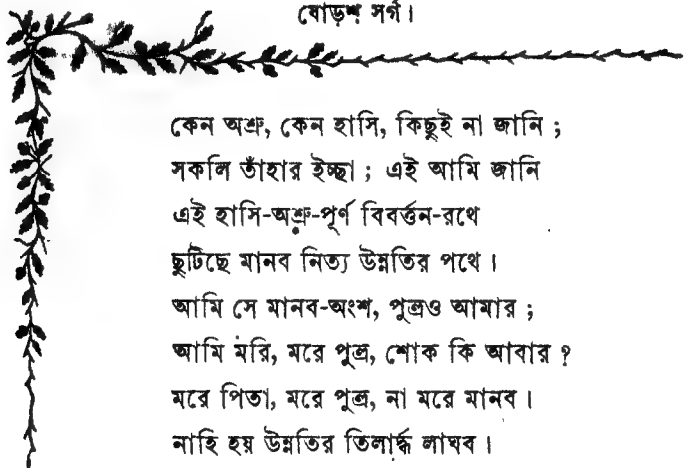 ষোড়শ সর্গ।
কেন অশ্রু, কেন হাসি, কিছুই না জানি ;
সকলি তাঁহার ইচ্ছা ; এই আমি জানি
এই হাসি-অশ্রু-পূর্ণ বিবর্ত্তন-রথে
ছুটিছে মানব নিত্য উন্নতির পথে ।
আমি সে মানব-অংশ, পুত্রও আমার ;
আমি মরি, মরে পুত্র, শোক কি আবার ?
মরে পিতা, মরে পুত্র, না মরে মানব ।
নাহি হয় উন্নতির তিলার্দ্ধ লাঘব ।